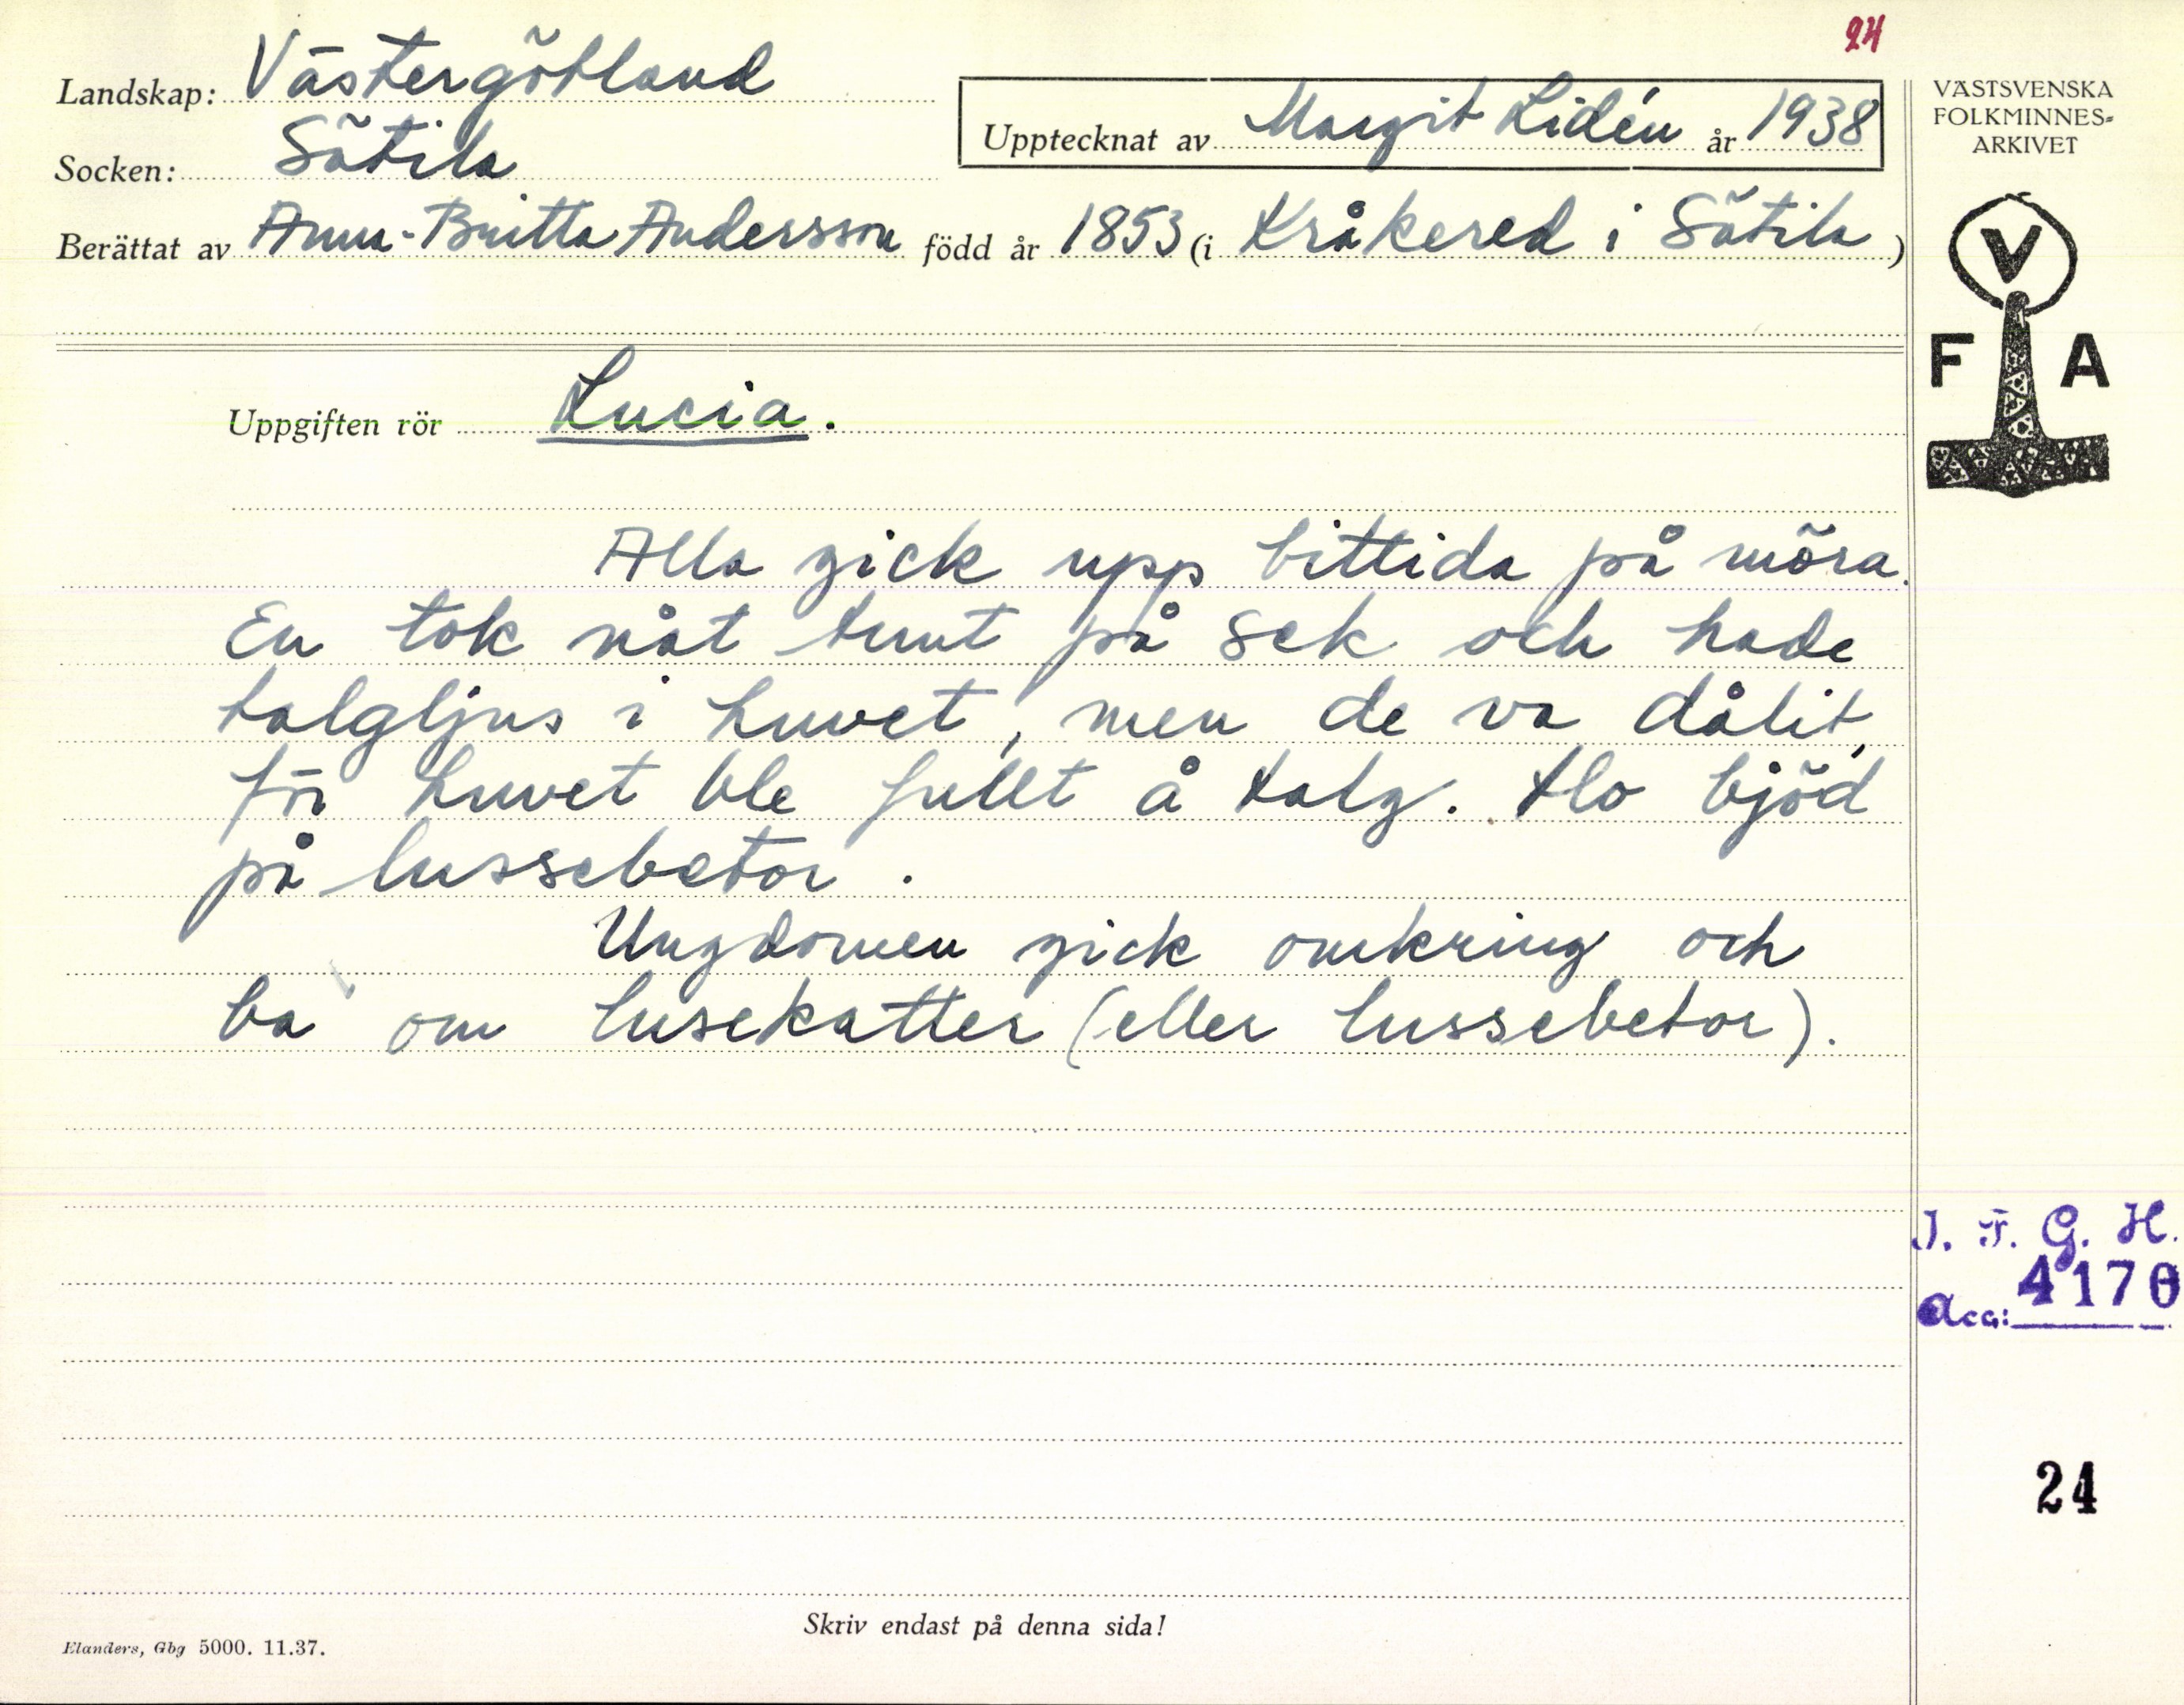 24
Landskap: Västergötland
Upptecknat av Margit Lidén år 1938
Socken: Sätila
Berättat av Anna-Britta Andersson född år 1853 (i Kråkered i Sätila)
VÄSTSVENSKA
FOLKMINNES-
ARKIVET
V
F A
Uppgiften rör Lucia.
Alla gick upp bittida på möra.
En tok nåt tunt på sek och hade
talgljus i huvet, men de va dålit,
för huvet ble fullt å talg. Ho bjöd
på lussebetor.
Ungdomen gick omkring och
ba om lusekatter (eller lussebetor).
I. F. G. H.
Acc: 4170
24
Skriv endast på denna sida!
Elanders, Gbg 5000. 11.37.